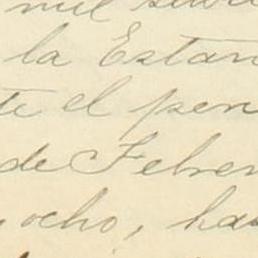 mil
la Estan
te el pen
de Febrer
ocho, ha